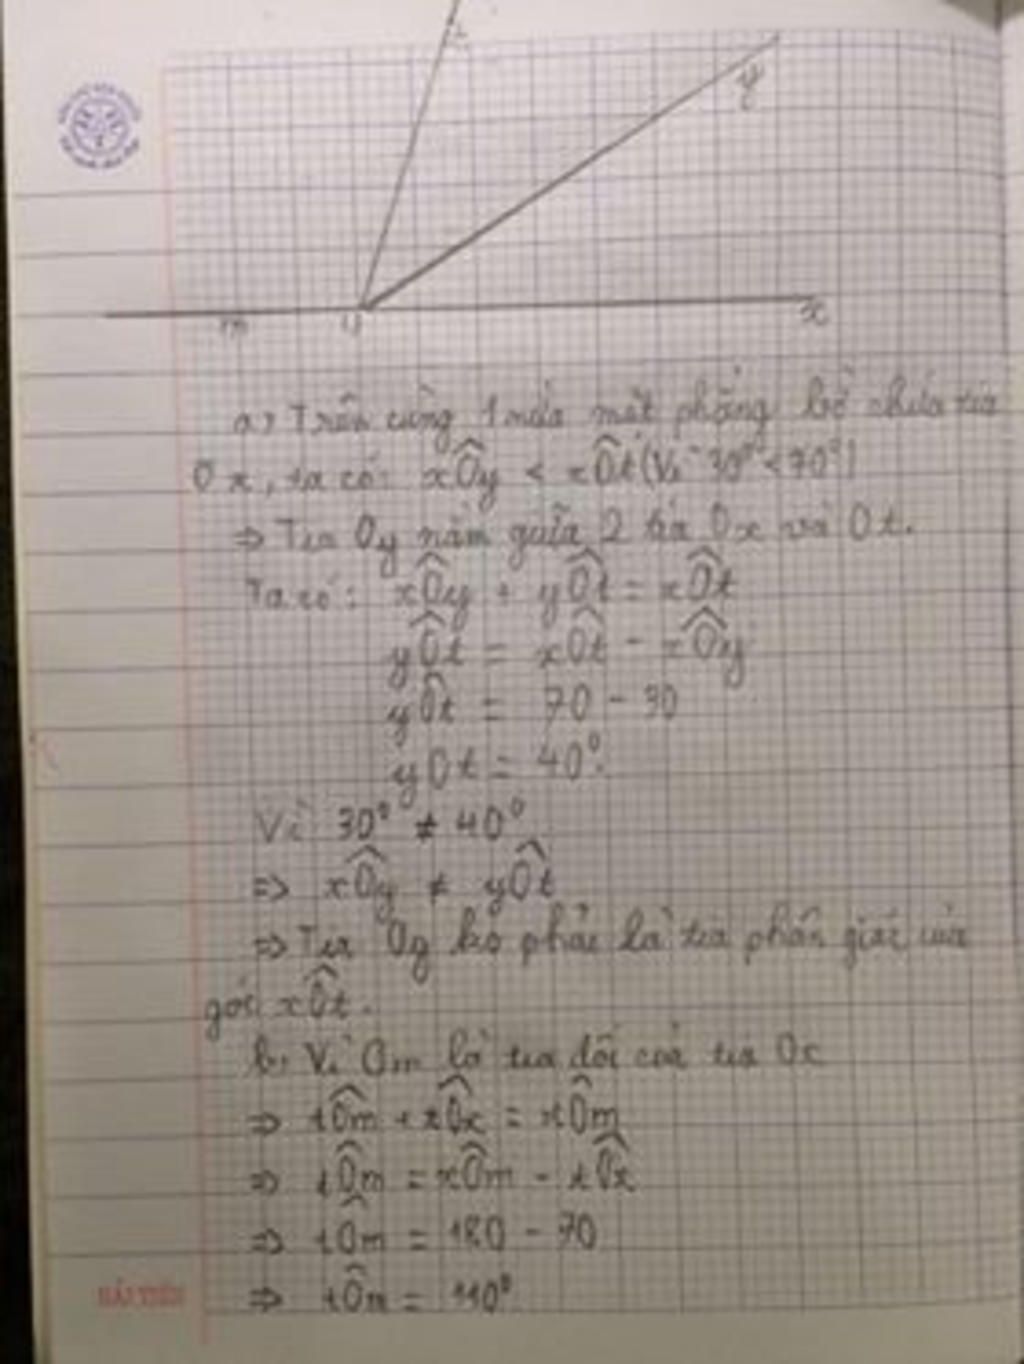 t
y
m O x
a) Trên cùng 1 nửa mặt phẳng bờ chứa tia
Ox, ta có: xÔy < xÔt (Vì 30° < 70°)
⇒ Tia Oy nằm giữa 2 tia Ox và Ot.
Ta có: xÔy + yÔt = xÔt
yÔt = xÔt - xÔy
yÔt = 70 - 30
yOt = 40°.
Vì 30° ≠ 40°
⇒ xÔy ≠ yÔt
⇒ Tia Oy ko phải là tia phân giác của
góc xÔt.
b) Vì Om là tia đối của tia Ox
⇒ tÔm + tÔx = xÔm
⇒ tÔm = xÔm - tÔx
⇒ tÔm = 180 - 70
⇒ tÔm = 110°
HẢI TIẾN